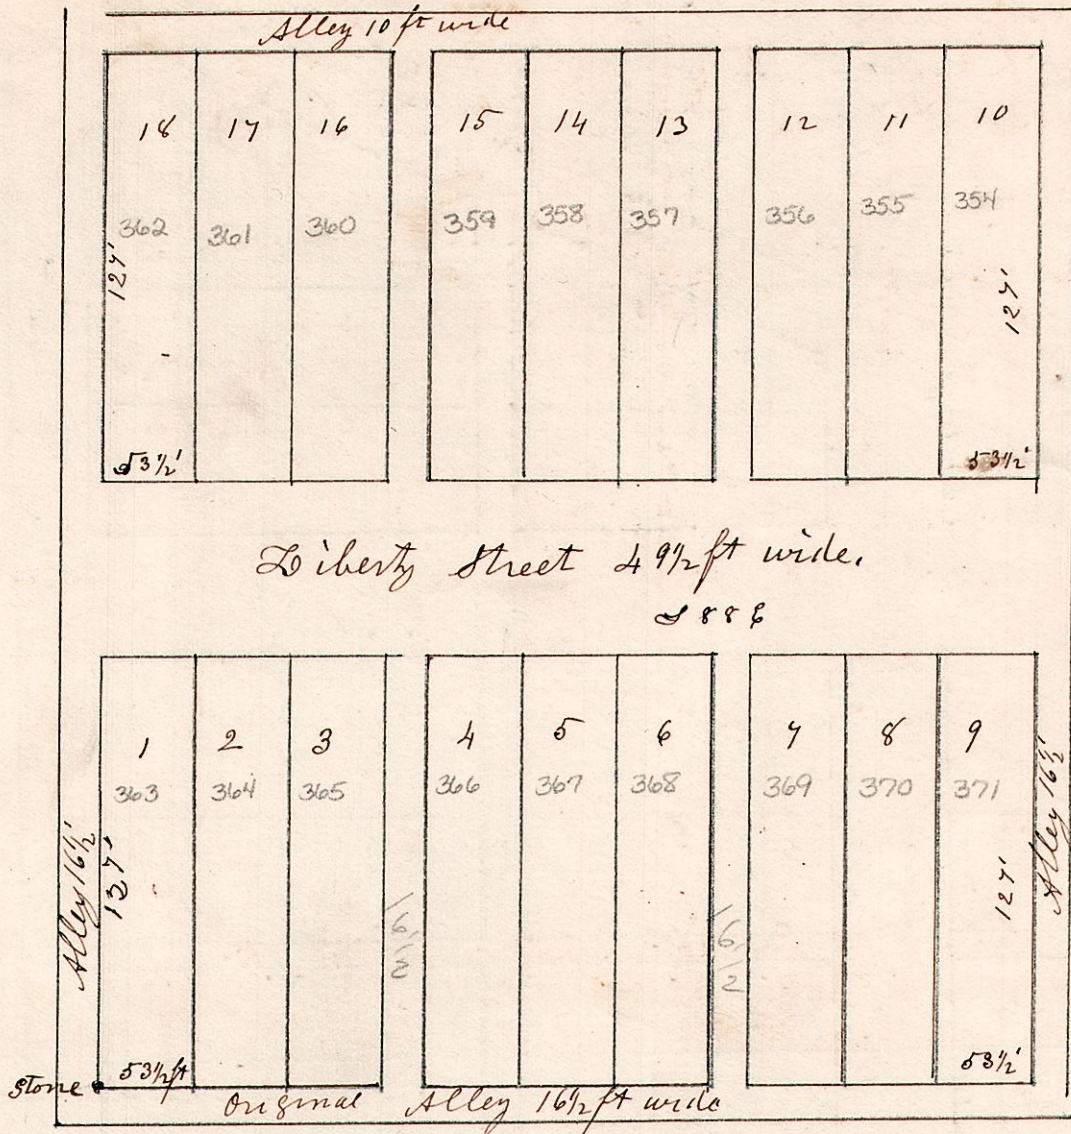 Alley 10 ft wide
18 17 16 15 14 13 12 11 10
362 361 360 359 358 357 356 355 354
127' 127'
53½' 53½'
Liberty Street 49½ ft wide.
1 2 3 4 5 6 7 8 9
363 364 365 366 367 368 369 370 371
Alley 16½' 127' 16½ 16½ 127' Alley 16½'
53½ ft 53½'
Stone
Original Alley 16½ ft wide